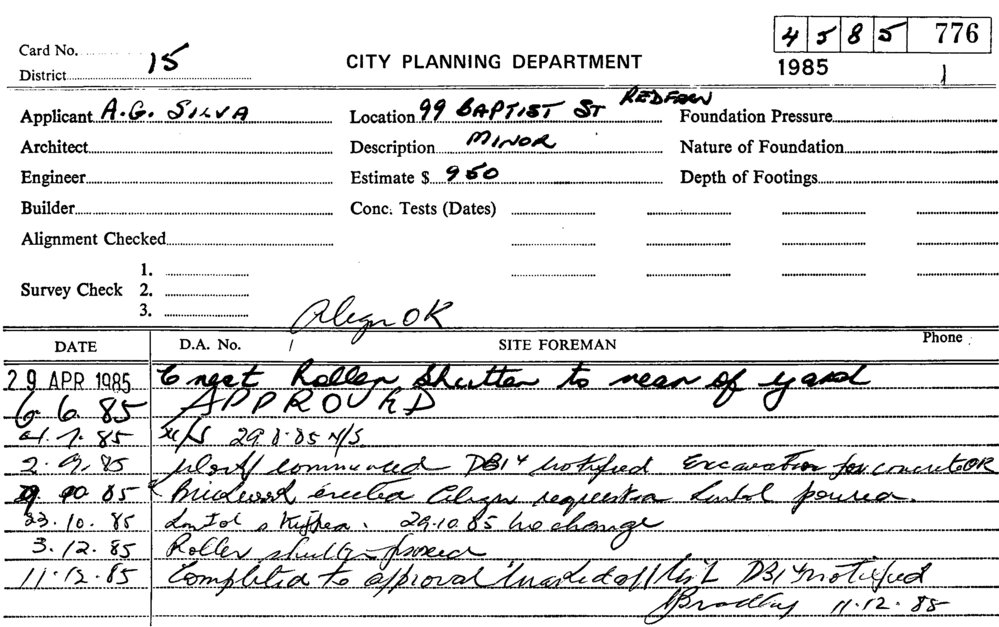 4 5 8 5 776
Card No.
District 15
CITY PLANNING DEPARTMENT
1985 1
Applicant A.G. SILVA Location 99 BAPTIST ST REDFERN Foundation Pressure
Architect Description MINOR Nature of Foundation
Engineer Estimate $ 950 Depth of Footings
Builder Conc. Tests (Dates)
Alignment Checked
1.
Survey Check 2.
3.
Align OK
DATE D.A. No. SITE FOREMAN Phone
29 APR 1985 Erect Roller Shutter to rear of yard
6.6.85 APPROVED
7.85 N/S 29.8.85 N/S
2.9.85 Work commenced DB14 notified Excavation for concrete OK
10 85 Brickwork erected Align requested Lintol poured.
23.10.85 Lintol stripped. 29.10.85 no change
3.12.85 Roller shutter
11.12.85 Completed to approval marked off list DB14 notified
Bradley 11.12.85